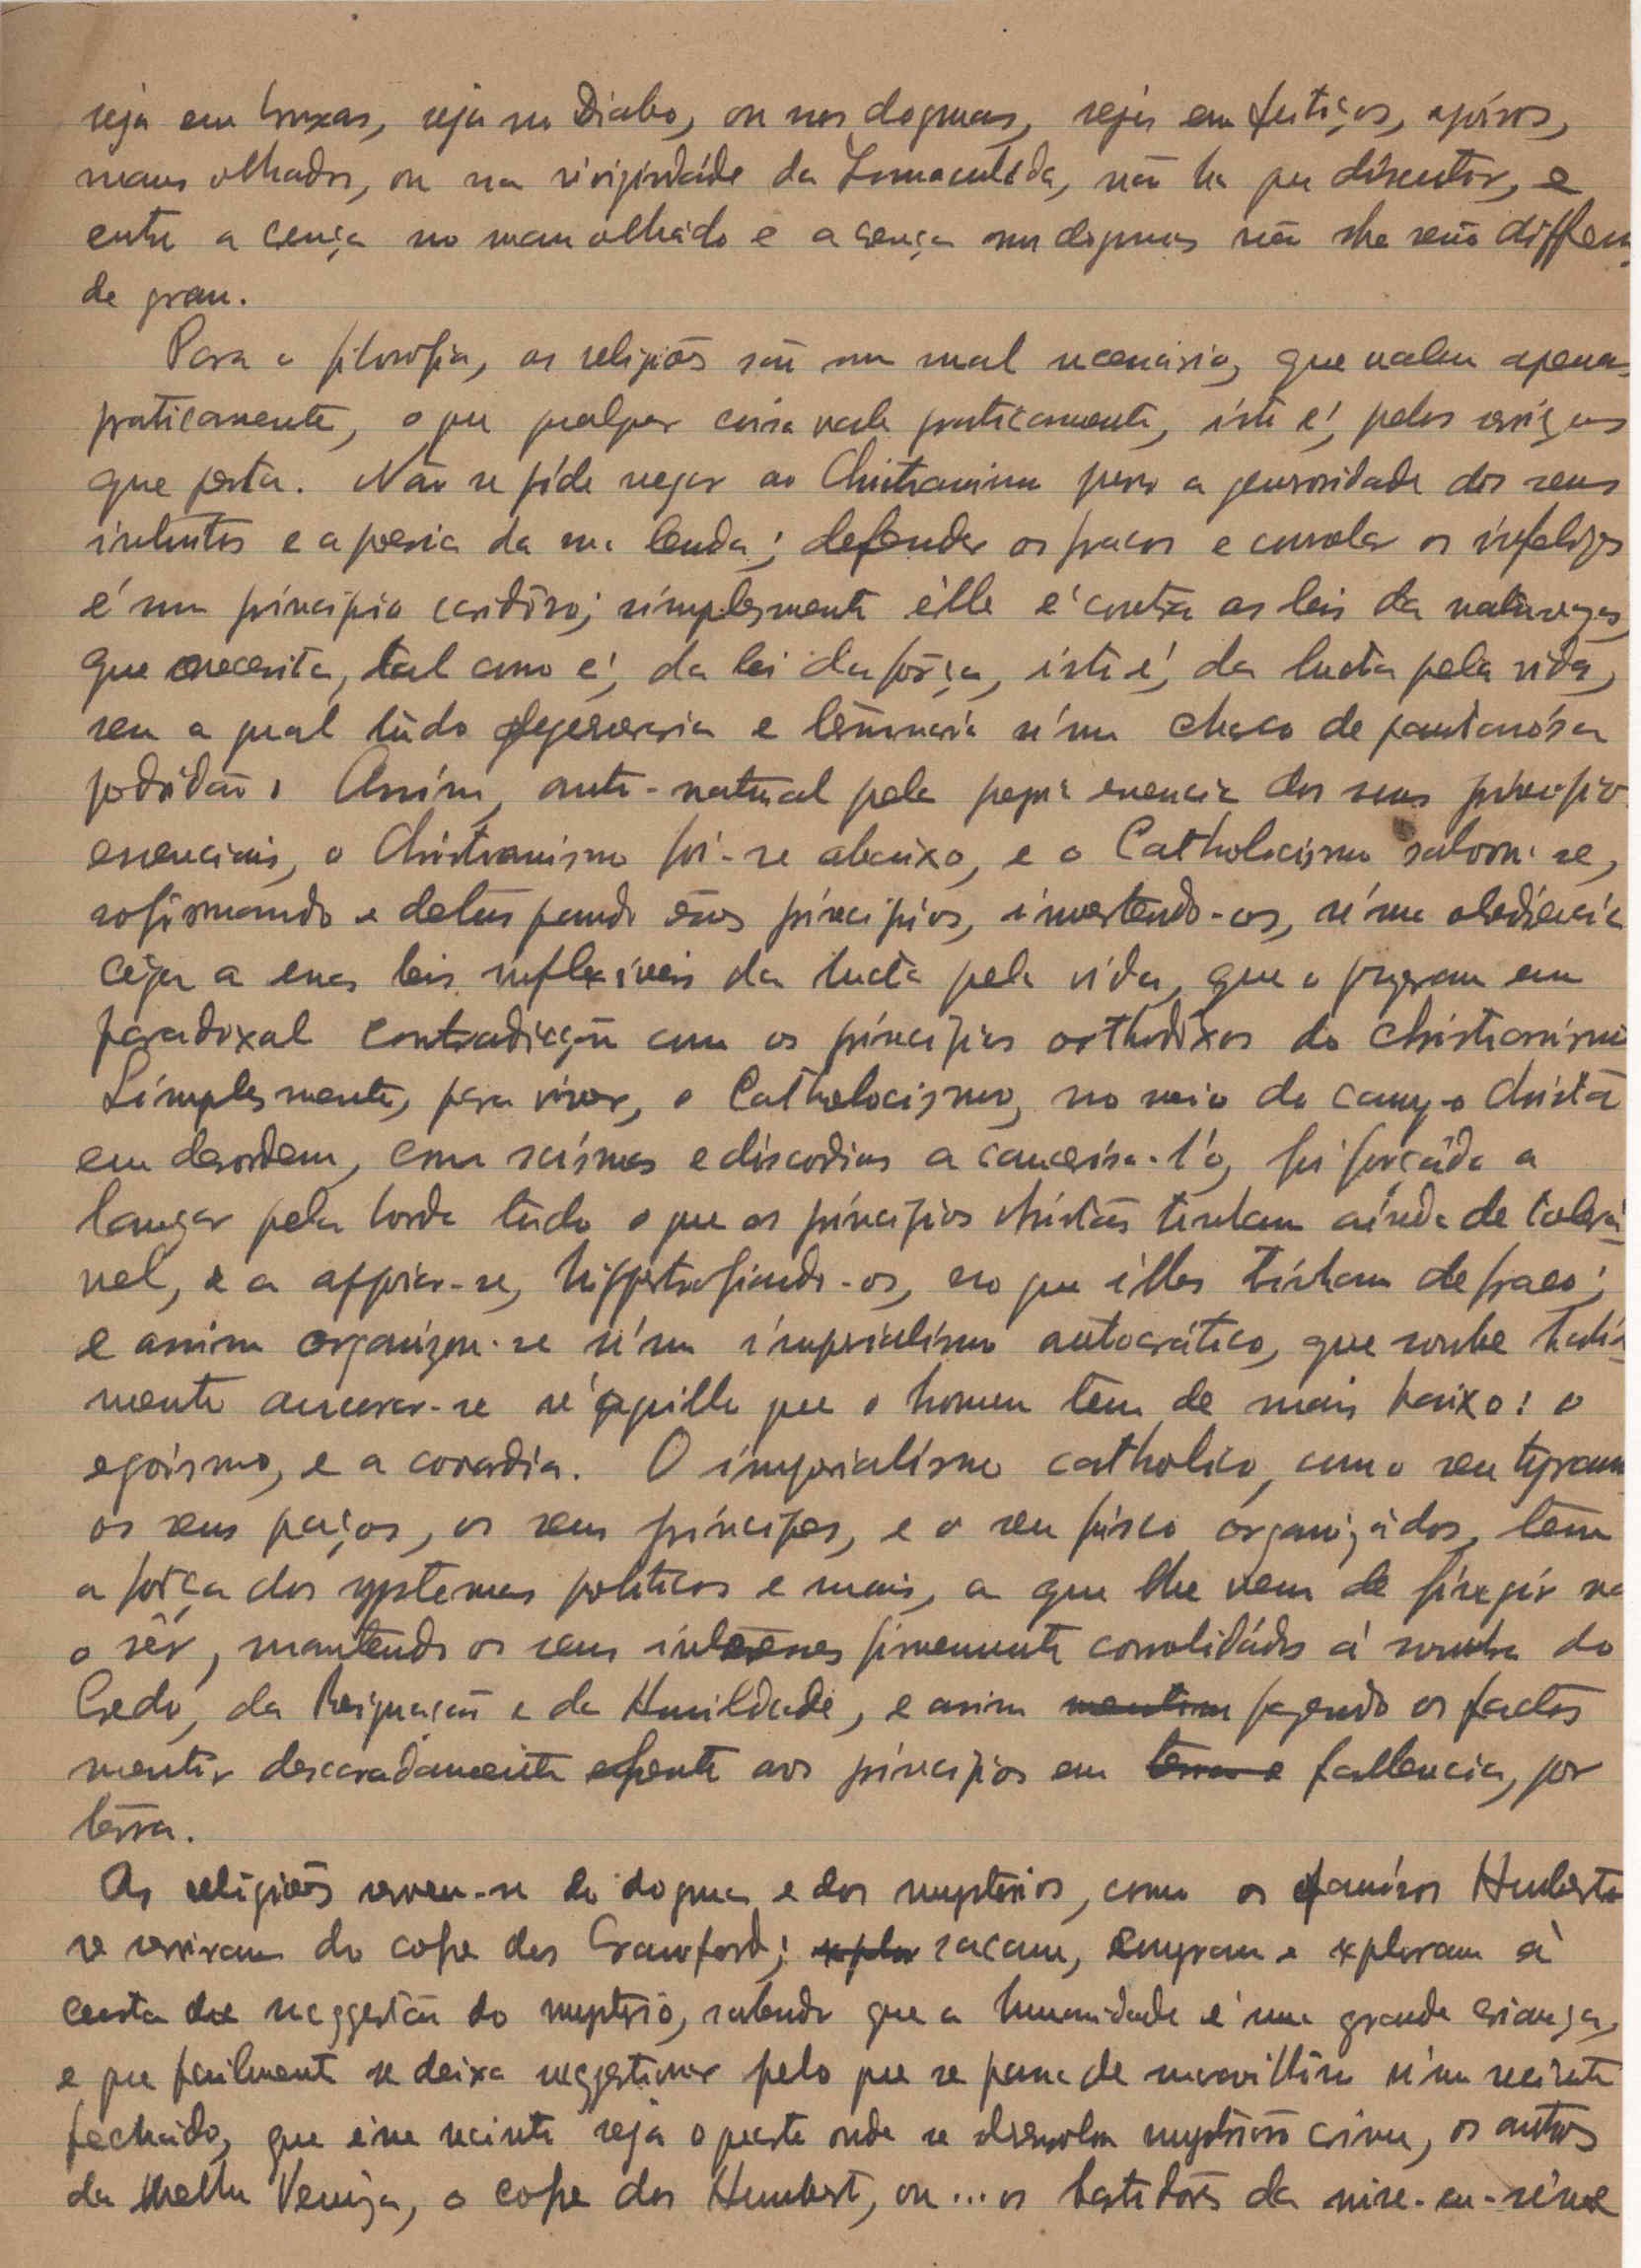 seja em bruxas, seja no Diabo, ou nos dogmas, seja em feitiços, agóiros,
maus olhados, ou na virgindáde da Immaculáda, não ha que discutir, e
entre a crença no mau olhádo e a crença nos dogmas não ha senão differen
de grau.
Para a filosofia, as religiões são um mal necessário, que valem apenas
praticamente, o que qualquer coisa vale praticamente, isto é, pelos serviços
que presta. Não se póde negar ao Christianismo puro a generosidade dos seus
intuitos e a poesia da sua lenda; defender os fracos e consolar os infelizes
é um principio caridôso; simplesmente êlle é contra as leis da natureza,
que necessita, tal como é, da lei da fôrça, isto é, da lucta pela vida,
sem a qual tudo degeneraria e terminaria n'um charco de pantanósa
podridão. Assim, anti-natural pela propria essencia dos seus principios
essenciais, o Christianismo foi-se abaixo, e o Catholicismo salvou-se,
sofismando e deturpando êsses principios, invertendo-os, n'uma obediencia
cega a essas leis inflexiveis da lucta pela vida, que o puzeram em
paradoxal contradicção com os principios orthodoxos do christianismo
Simplesmente, para viver, o Catholocismo, no meio do campo christão
em desordem, com scismas e discordias a cancerisa-l'o, foi forçádo a
lançar pela borda tudo o que os principios christãos tinham ainda de tolerá
vel, e a appoiar-se, hippertrofiando-os, no que êlles tinham de fraco;
e assim organizou-se n'um imperialismo autocrático, que soube
mente ancorar-se n'aquillo que o homem tem de mais baixo: o
egoismo, e a covardia. O imperialismo catholico, com o seu tyranno
os seus paços, os seus principes, e o seu fisco organizádos, tem
a fôrça dos systemas politicos e mais, a que lhe vem de fingir não
o sêr, mantendo os seus intêresses firmemente consolidádos á sombra do
Credo, da Resignação e da Humildade, e assim mentem fazendo os factos
mentir descaradamente frente aos principios em terra e fallencia, por
terra.
As religiões servem-se do dogma e dos mysterios, como os famósos Humberts
se serviram do cofre dos Crawford; explor sacam, e exploram á
custa da suggestão do mysterio, sabendo que a humanidade é uma grande criança,
e que facilmente se deixa suggestionar pelo que se passa de maravilhoso n'um recinto
fechádo, que êsse recinto seja o quarto onde se desenrolou mysterioso crime, os antros
da velha Veneza, o cofre dos Humbert, ou ... os bastidôres da mise-en-scène